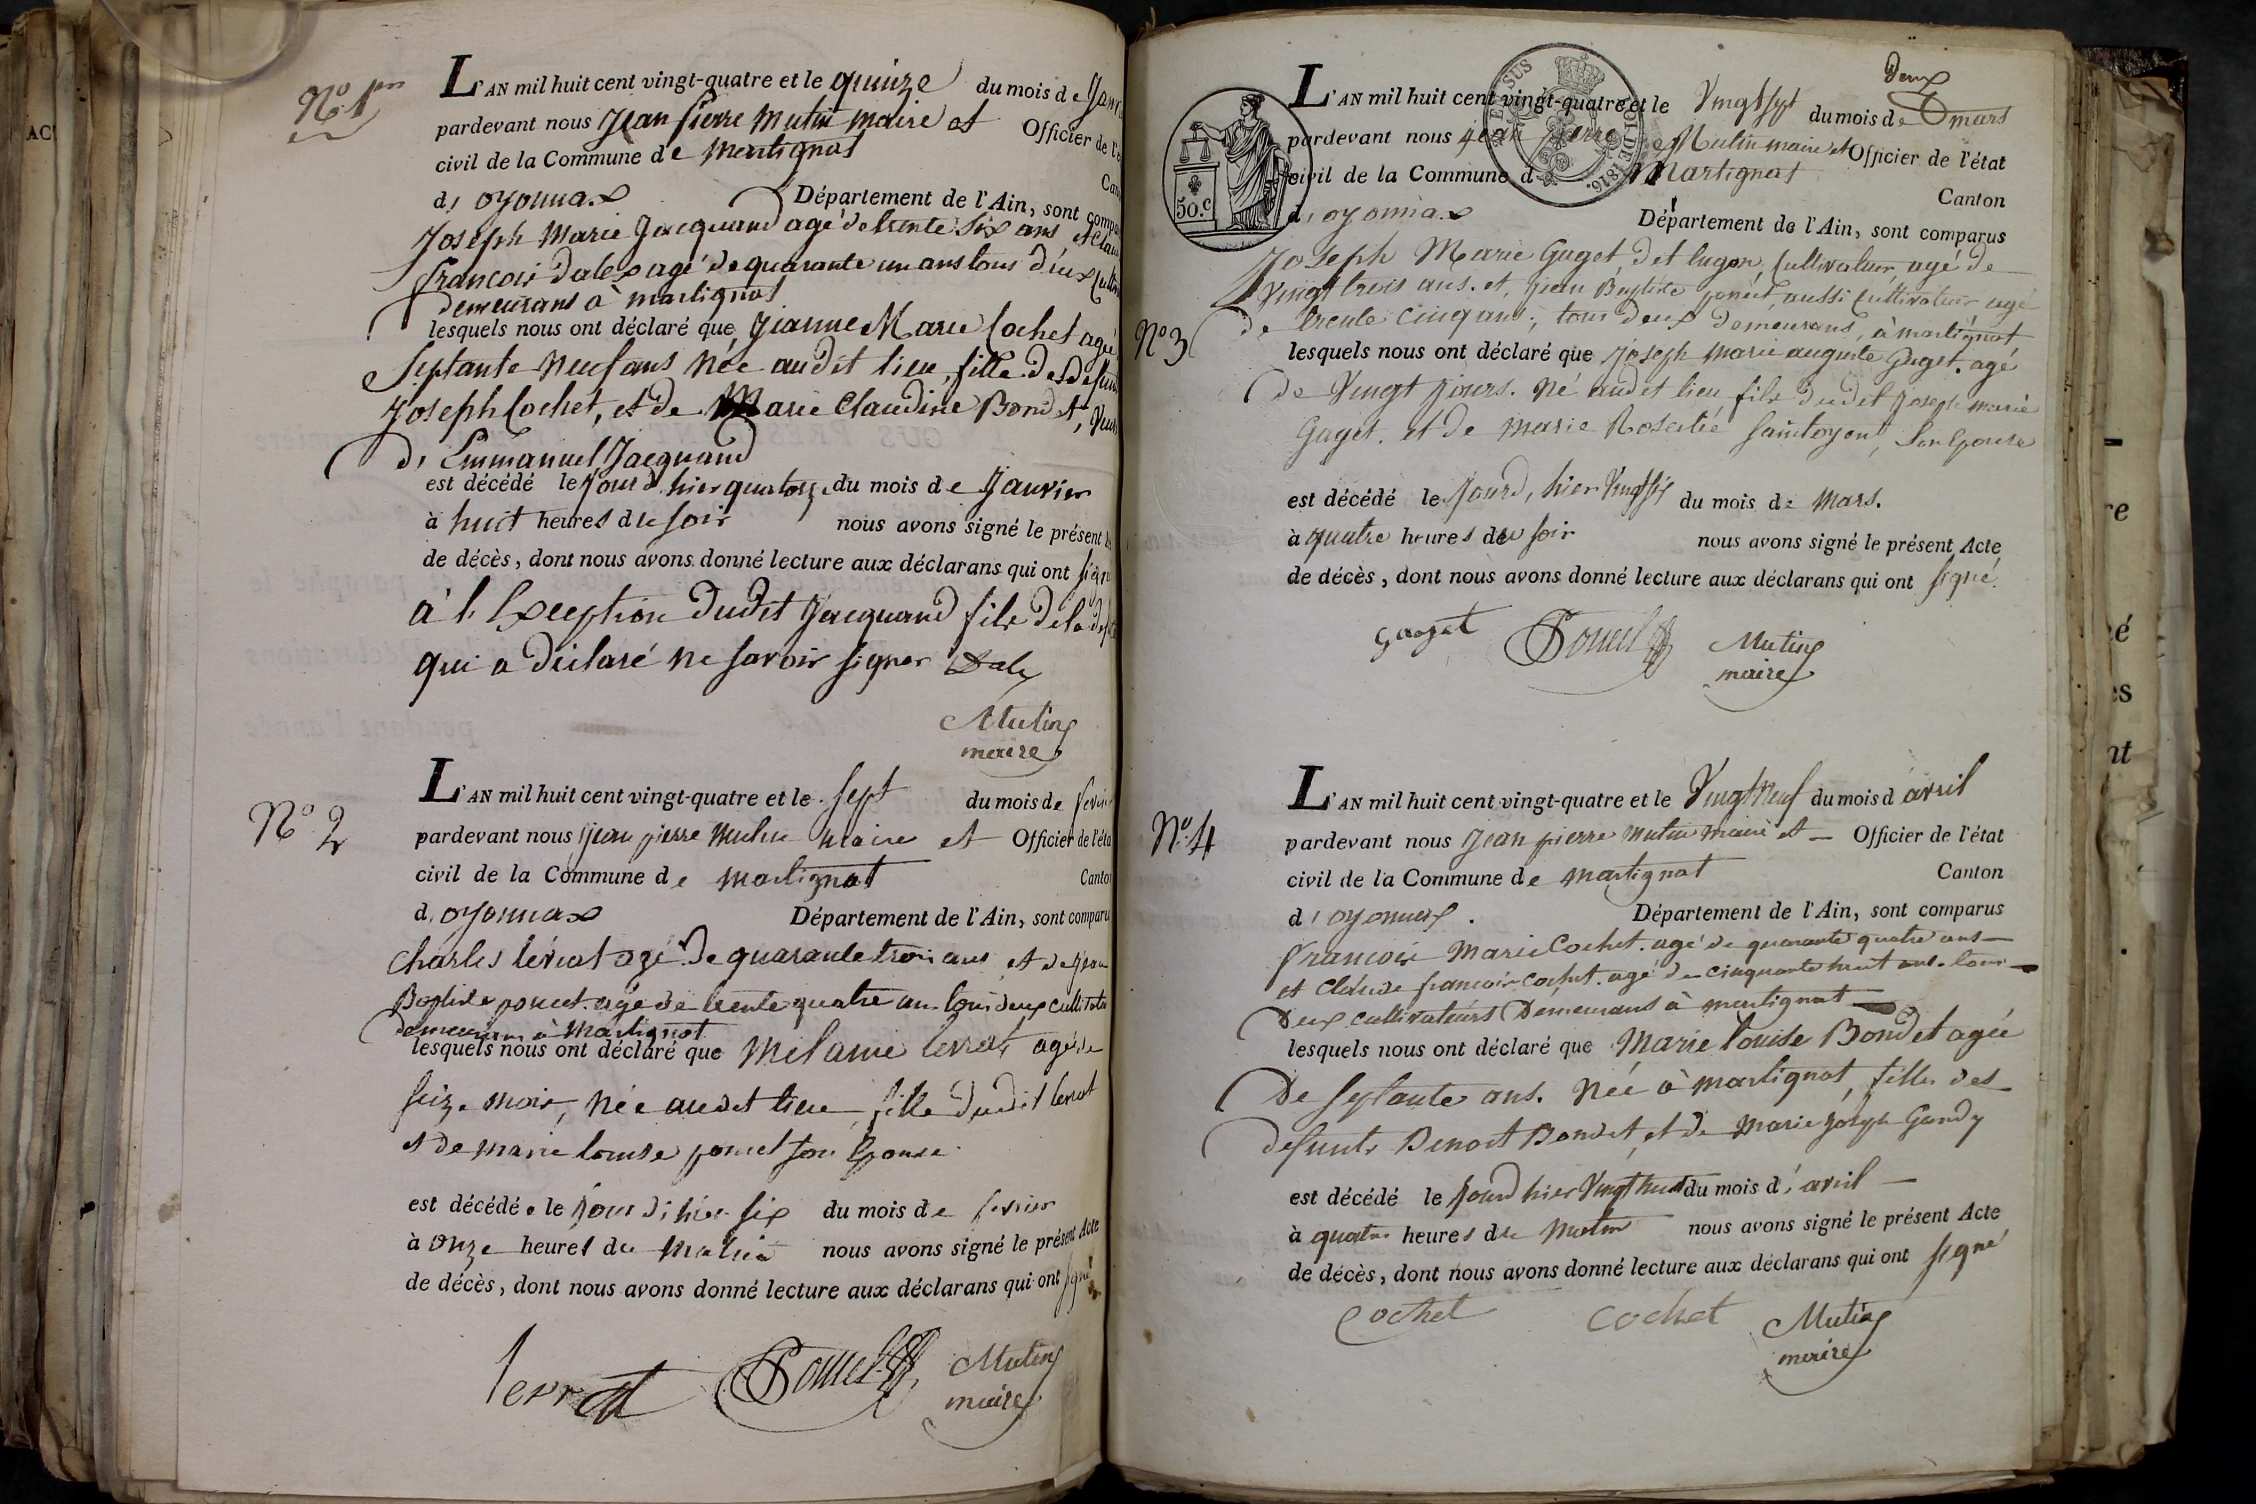 N.º 1er
L'AN mil huit cent vingt-quatre et le quinze du mois de Janv
pardevant nous Jean pierre Mutin maire et Officier de l'é
civil de la Commune de Martignat
Can
d, oyonnax Département de l'Ain, sont compa
Joseph Marie Jacquand agé de trente six ans, et Clau
francois Dalex agé de quarante un ans tous deux Cultiv
demeurans à martignat
lesquels nous ont déclaré que, Jeanne Marie Cochet agée
Septante Neuf ans Née audit lieu, fille des defun
Joseph Cochet, et de Marie Claudine Bondet, Veuv
d, Emmanuel Jacquand
est décédé le jour d'hier quatorze du mois de Janvier
à huit heures du soir nous avons signé le présent
de décès, dont nous avons donné lecture aux déclarans qui ont signé
à l'Exception dudit Jacquand fils de la def
qui a déclaré ne savoir signer Dalex
Mutin
maire
N.º 2
L'AN mil huit cent vingt-quatre et le sept du mois de fevrier
pardevant nous jean pierre Mutin maire et Officier de l'éta
civil de la Commune de Martignat
Canton
d, oyonnax Département de l'Ain, sont comparu
Charles levrat agé de quarante trois ans et de jean
Baptiste poncet agé de trente quatre ans tous deux cultivateu
demeurans à Martignat
lesquels nous ont déclaré que Melanie levrat, agée de
seize mois, Née audit lieu, fille dudit levrat
et de marie louise poncet son Epouse
est décédée le jour d'hier six du mois de fevrier
à onze heures du Matin nous avons signé le présent Acte
de décès, dont nous avons donné lecture aux déclarans qui ont signé
levrat Poncet Mutin
maire
POI DE 1816.
50.c
Deux
L'AN mil huit cent vingt-quatre et le Vingt sept du mois de mars
pardevant nous jean pierre Mutin maire et Officier de l'état
civil de la Commune de Martignat
Canton
d, oyonnax
Département de l'Ain, sont comparus
Joseph Marie Guget dit lugon, Cultivateur, agé de
Vingt trois ans. et, jean Baptiste poncet, aussi Cultivateur agé
Nº 3
de trente cinq ans; tous deux demeurans, à martignat
lesquels nous ont déclaré que Joseph marie auguste Guget. agé
de Vingt jours. Né audit lieu fils dudit joseph marie
Guget. et de marie Rosalie Saintoyen, Son Epouse
est décédé le jourd, hier Vingt six du mois de Mars.
à quatre heures du soir nous avons signé le présent Acte
de décès, dont nous avons donné lecture aux déclarans qui ont signé.
Guget Poncet Mutin
maire
Nº 4
L'AN mil huit cent vingt-quatre et le Vingt Neuf du mois d'avril
pardevant nous Jean pierre Mutin maire et Officier de l'état
civil de la Commune de Martignat
Canton
d, oyonnax.
Département de l'Ain, sont comparus
francois Marie Cochet. agé de quarante quatre ans
et Claude francois Cochet. agé de cinquante huit ans. tous
deux cultivateurs Demeurans à martignat
lesquels nous ont déclaré que Marie louise Bondet agée
de Septante ans. Née à martignat, filles des
defunts Benoit Bondet, et de Marie Joseph Gandy
est décédé le jourd hier Vingt huit du mois d'avril
à quatre heures du Matin nous avons signé le présent Acte
de décès, dont nous avons donné lecture aux déclarans qui ont signé
Cochet Cochet Mutin
maire